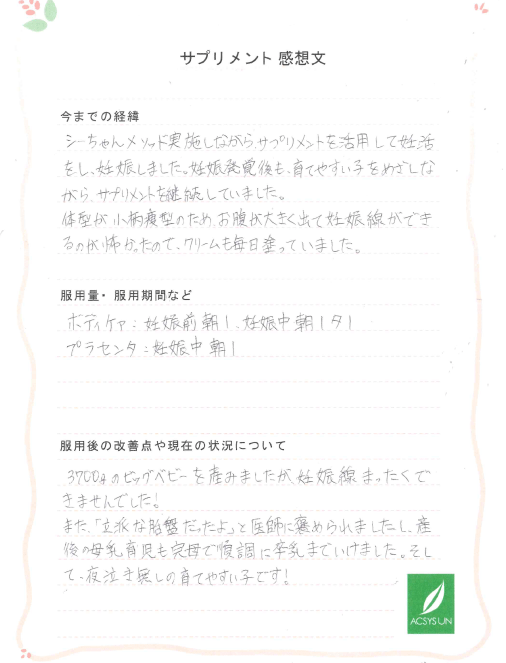 サプリメント 感想文
今までの経緯
シーちゃんメソッド実施しながら、サプリメントを活用して妊活
をし、妊娠しました。妊娠発覚後も、育てやすい子をめざしな
がら、サプリメントを継続していました。
体型が小柄痩型のため、お腹が大きく出て妊娠線ができ
るのが怖かったので、クリームも毎日塗っていました。
服用量・服用期間など
ボディケア：妊娠前朝1、妊娠中朝1夕1
プラセンタ：妊娠中 朝1
服用後の改善点や現在の状況について
3700gのビッグベビーを産みましたが、妊娠線まったくで
きませんでした！
また、「立派な胎盤だったよ」と医師に褒められましたし、産
後の母乳育児も完母で順調に卒乳までいけました。そし
て、夜泣き無しの育てやすい子です！
ACSYSUN